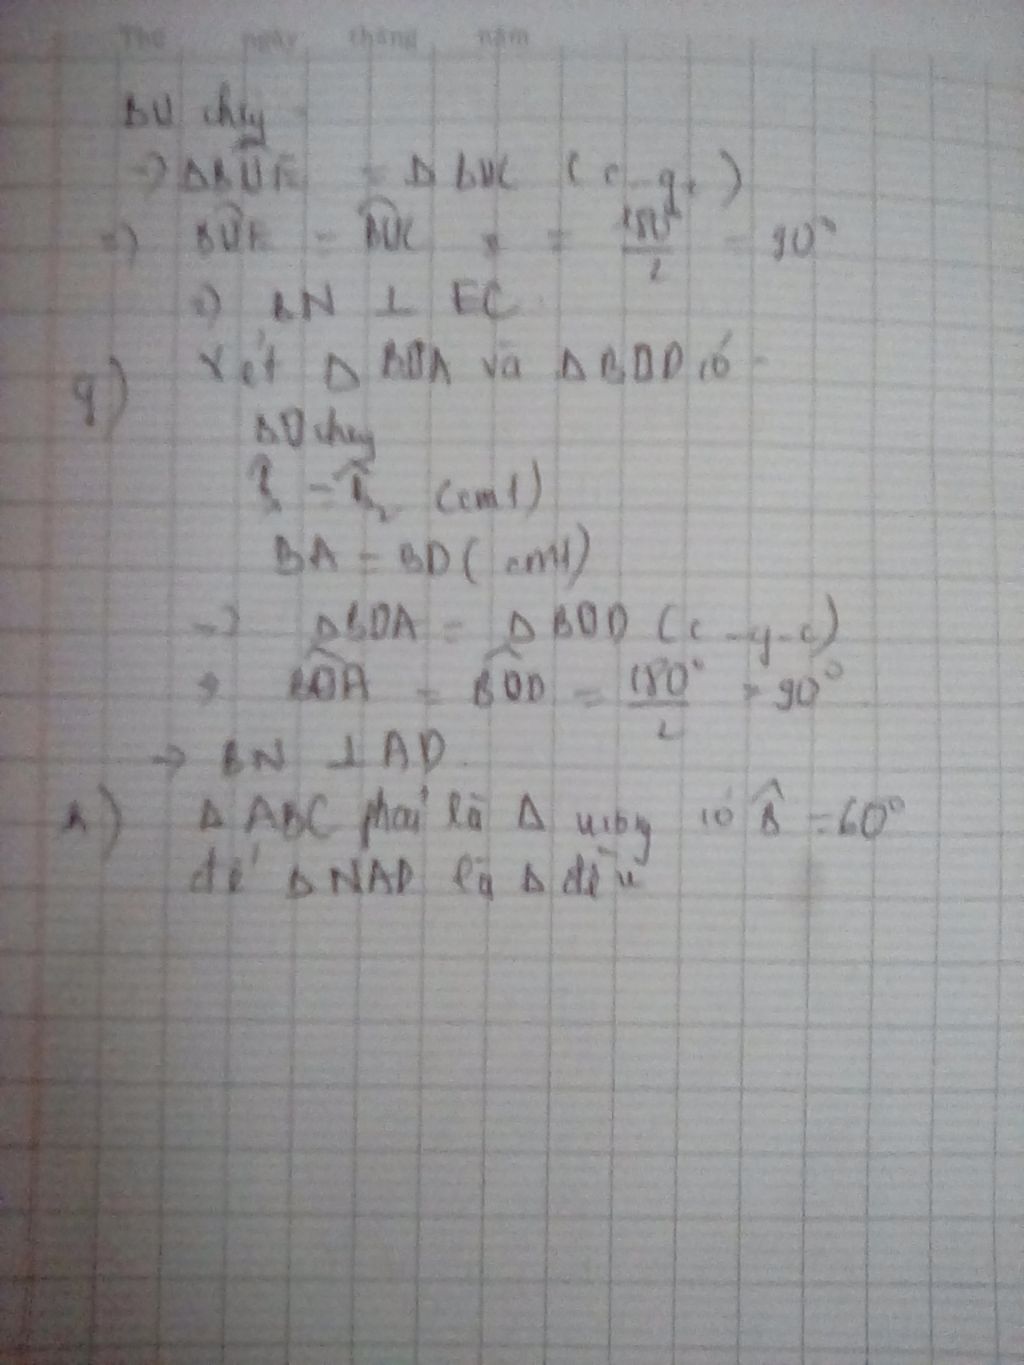 Thứ ngày tháng năm
BU chug
=> ΔBUE = Δ BUC (c-g-)
=> BÛE = BÛC = 180°/2 = 90°
=> BN ⊥ EC
g) Xét Δ BOA và Δ BOD có
BO chug
B̂₁ = B̂₂ (cmt)
BA = BD (cmt)
=> ΔBOA = Δ BOD (c-g-c)
=> BÔA = BÔD = 180°/2 = 90°
=> BN ⊥ AD.
h) Δ ABC phải là Δ có B̂ = 60°
để Δ NAD là Δ đều